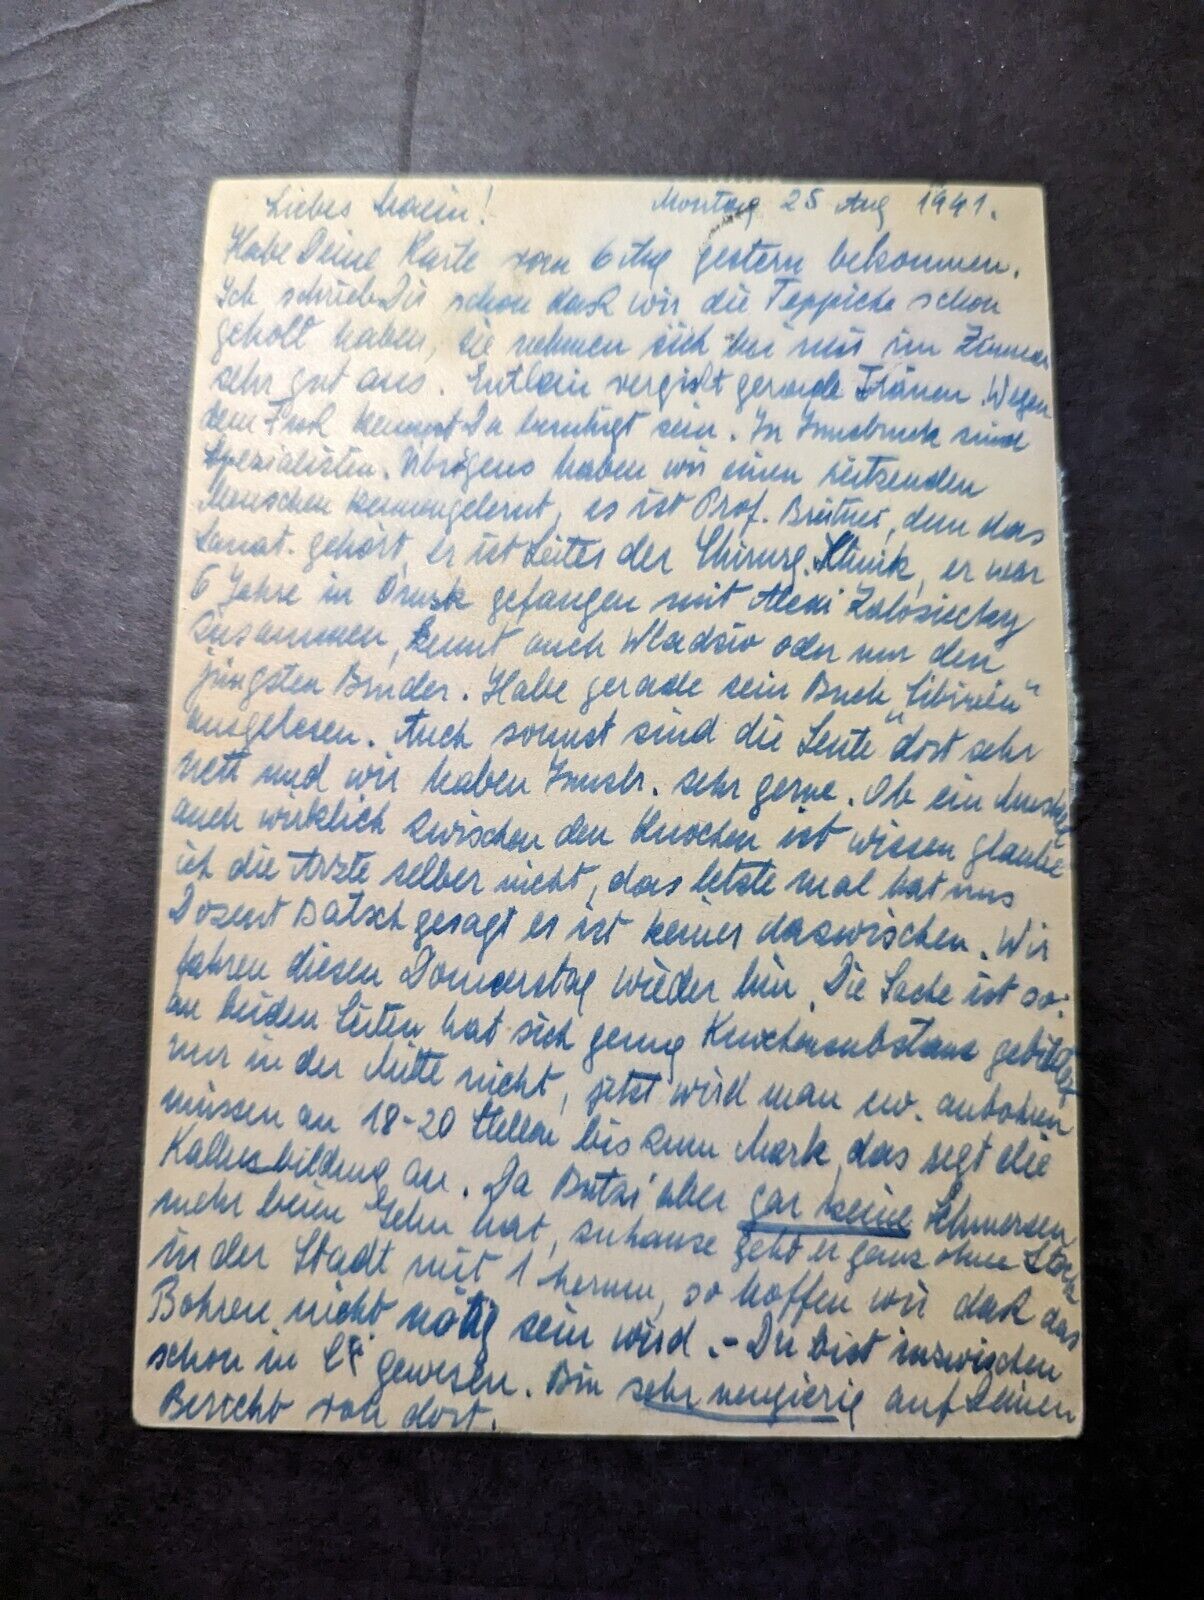 Liebes                    Montag 25 Aug 1941.
Habe Deine Karte vom 6 Aug gestern bekommen.
Ich schrieb Dir schon dass wir die Teppiche schon
geholt haben, sie nehmen sich bei uns im Zimmer
sehr gut aus. vergisst gerade Tränen. Wegen
dem Fuß kannst Du beruhigt sein. In Innsbruck sind
Spezialisten. Übrigens haben wir einen reizenden
Menschen kennengelernt, es ist Prof. Breitner, dem das
Sanat. gehört, er ist Leiter der Chirurg. Klinik, er war
6 Jahre in Omsk gefangen mit Alexi Zalosiecky
zusammen, kennt auch Wladziv oder nur den
jüngsten Bruder. Habe gerade sein Buch „Sibirien"
ausgelesen. Auch sonnst sind die Leute dort sehr
nett und wir haben Innsbr. sehr gerne. Ob ein Muskel
auch wirklich zwischen den Knochen ist wissen glaube
ich die Ärzte selber nicht, das letzte mal hat uns
Dozent Batsch gesagt es ist keiner dazwischen. Wir
fahren diesen Donnerstag wieder hin. Die Sache ist so:
an beiden Seiten hat sich genug Knochensubstanz gebildet
nur in der Mitte nicht, jetzt wird man ev. anbohren
müssen an 18-20 Stellen bis zum Mark, das regt die
Kallusbildung an. Da Butzi aber gar keine Schmerzen
mehr beim Gehn hat, zuhause geht er ganz ohne Stock
in der Stadt mit 1 herum, so hoffen wir dass das
Bohren nicht nötig sein wird. - Du bist inzwischen
schon in gewesen. Bin sehr neugierig auf Deinen
Bericht von dort.